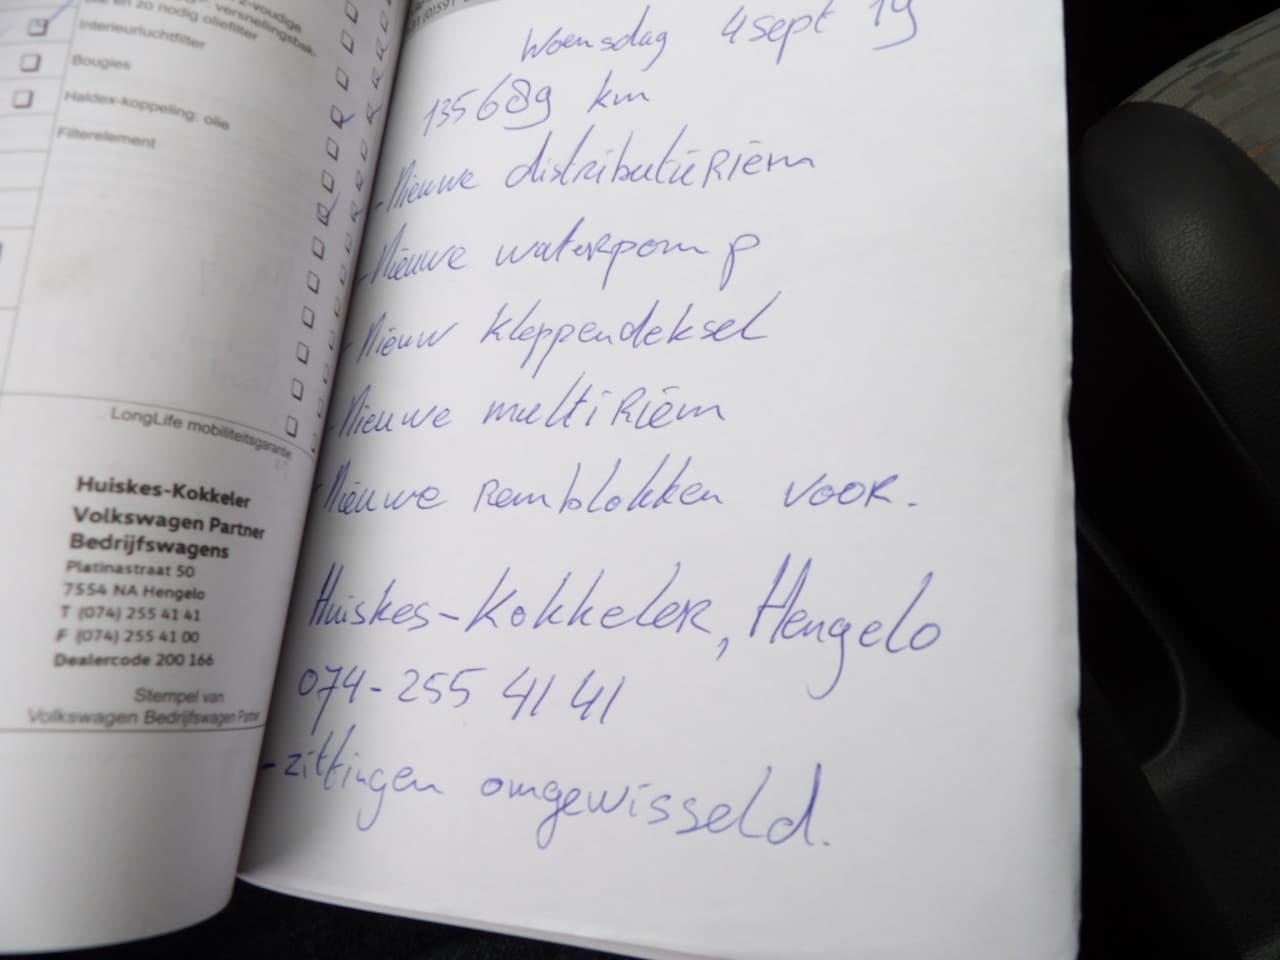 versnellingsbak
en zo nodig oliefilter
Interieurluchtfilter
Bougies
Haldex-koppeling: olie
Filterelement
LongLife mobiliteitsgarantie
Huiskes-Kokkeler
Volkswagen Partner
Bedrijfswagens
Platinastraat 50
7554 NA Hengelo
T (074) 255 41 41
F (074) 255 41 00
Dealercode 200 166
Stempel van
Volkswagen Bedrijfswagen Partner
Woensdag 4 sept 19
135689 km
- Nieuwe distributieriem
- Nieuwe waterpomp
- Nieuw kleppendeksel
- Nieuwe multiriem
- Nieuwe remblokken voor.
Huiskes-Kokkeler, Hengelo
074-255 41 41
- zittingen omgewisseld.